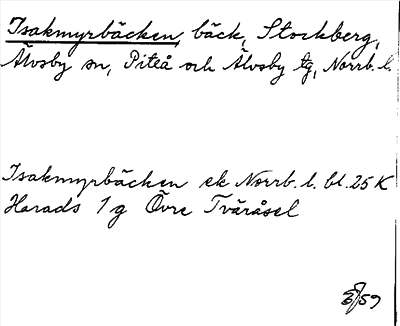 Isakmyrbäcken, bäck, Stockberg,
Älvsby sn, Piteå och Älvsby tg, Norrb. l.
Isakmyrbäcken ek Norrb. l. bl. 25 K
Harads 1 g Övre Tväråsel
59